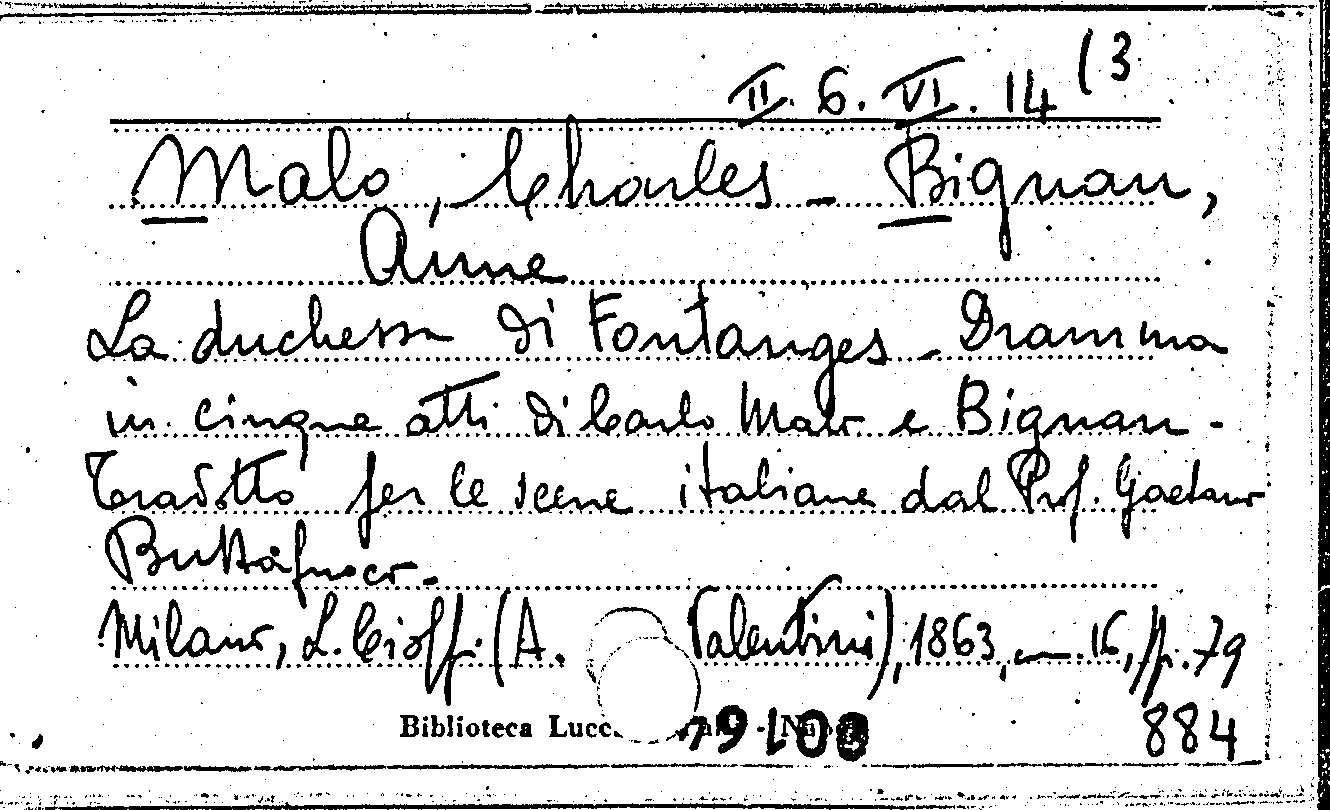 II. 6. VI. 14 (3
Malo, Charles - Bignan,
Anne
La duchessa di Fontanges - Dramma
in cinque atti di Carlo Malo e Bignan -
Tradotto per le scene italiane dal Prof. Gaetano
Buttafuoco -
Milano, L. Cioffi (A. Valentini), 1863, in 16, pp. 79
Biblioteca Lucc
884